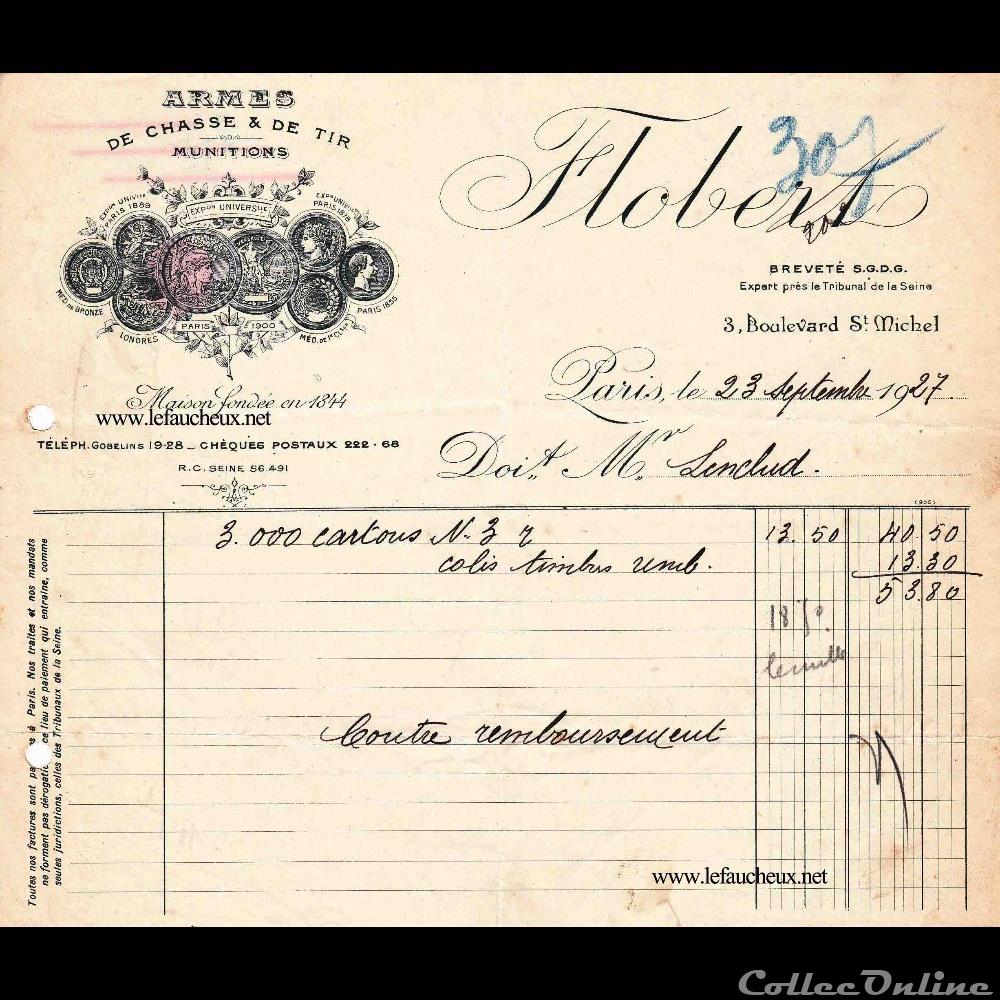 ARMES
DE CHASSE & DE TIR
MUNITIONS
EXPON UNIVLLE
PARIS 1889
EXPON UNIVERSLLE
EXPON UNIVLLE
PARIS 1878
MÉD. DE BRONZE
LONDRES
PARIS 1900
PARIS 1855
Maison fondée en 1844
www.lefaucheux.net
TÉLÉPH. GOBELINS 19-28 _ CHÈQUES POSTAUX 222-68
R.C. SEINE 56.491
Flobert
BREVETÉ S.G.D.G.
Expert près le Tribunal de la Seine
3, Boulevard St Michel
Paris, le 23 Septembre 1927.
Doit Mr Lenclud.
(905)
3.000 cartons N. 3 13.50 40.50
colis timbres remb. 13.30
53.80
le mille
Contre remboursement
Toutes nos factures sont à Paris. Nos traites et nos mandats
ne forment pas ce lieu de paiement qui entraîne, comme
seules juridictions, celles des Tribunaux de la Seine.
www.lefaucheux.net
CollecOnline